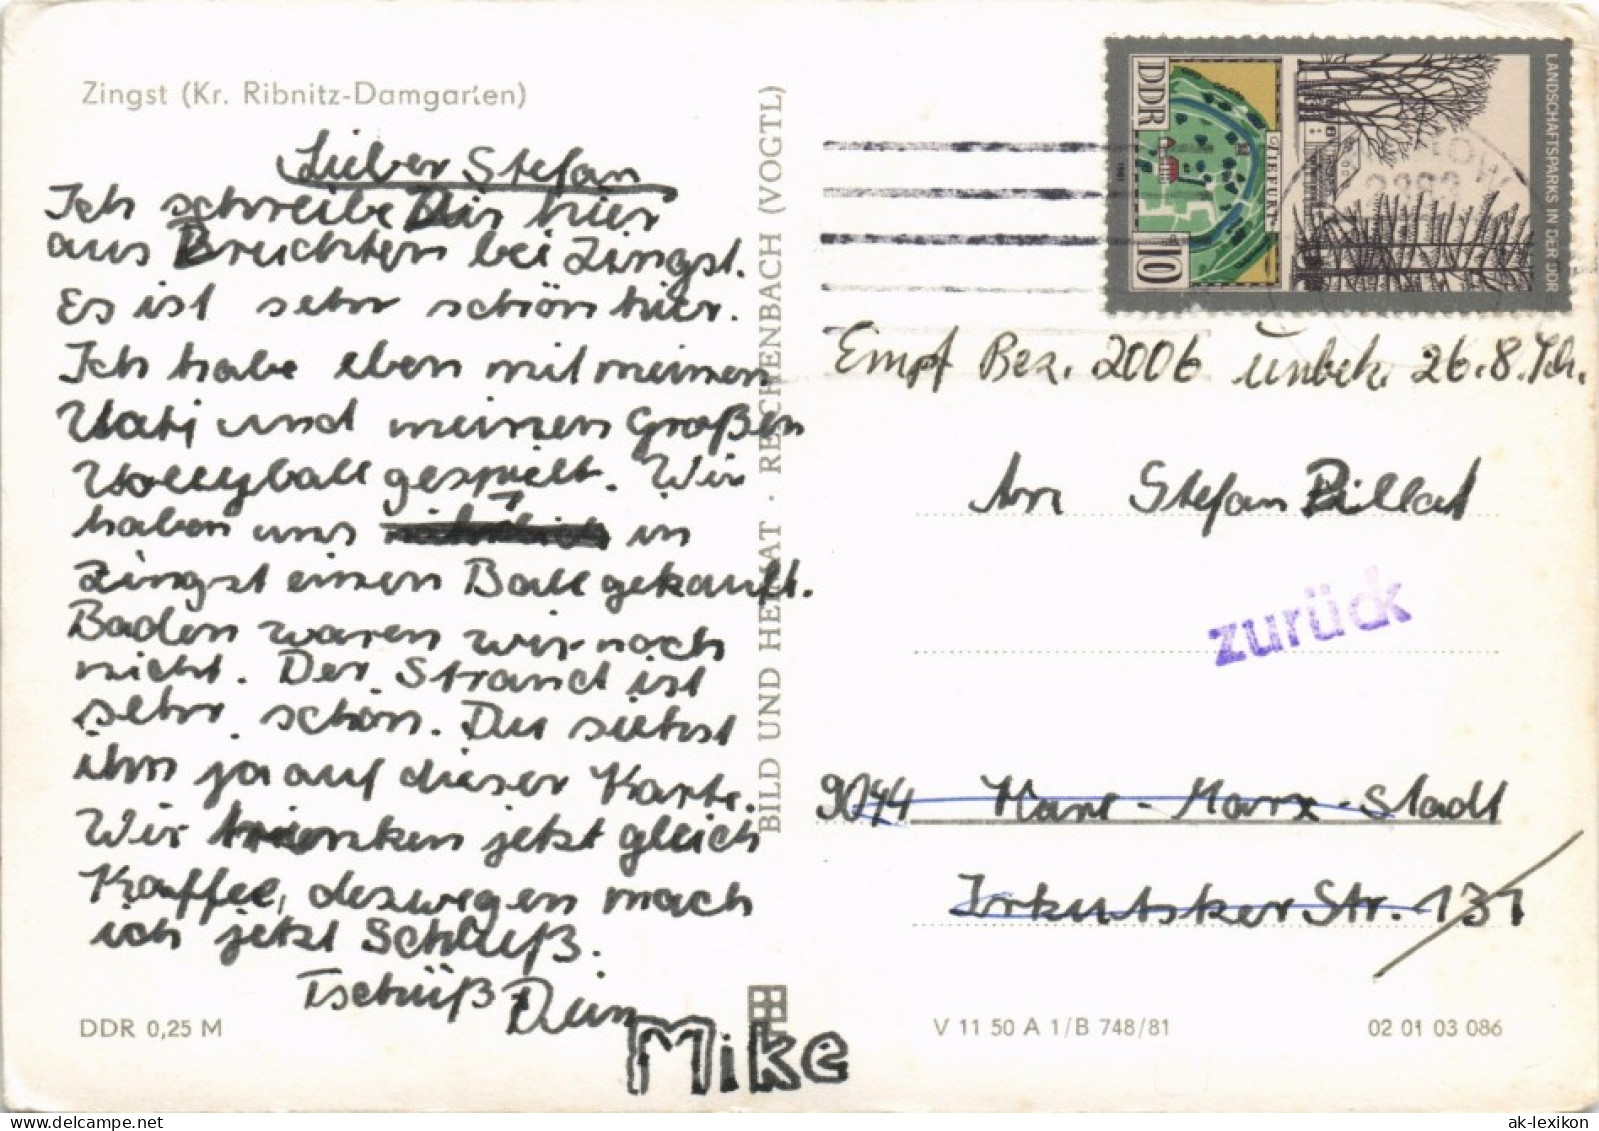 Zingst (Kr. Ribnitz-Damgarten)
Lieber Stefan
Ich schreibe Dir hier
aus Bruchsten bei Zingst.
Es ist sehr schön hier.
Ich habe eben mit meinen
Vati und meinen Großen
Volleyball gespielt. Wir
haben uns in
Zingst einen Ball gekauft.
Baden waren wir noch
nicht. Der Strand ist
sehr schön. Du siehst
ihn ja auf dieser Karte.
Wir trinken jetzt gleich
Kaffee, deswegen mach
ich jetzt Schluß.
Tschüß Dein
Mike
DDR 0,25 M
BILD UND HEIMAT · REICHENBACH (VOGTL)
DDR
10
TIEFURT
1981
LANDSCHAFTSPARKS IN DER DDR
Empf Bez. 2006 unbek. 26.8.
An Stefan Pillat
zurück
9044 Karl-Marx-Stadt
Irkutsker Str. 131
V 11 50 A 1/B 748/81
02 01 03 086
ak-lexikon